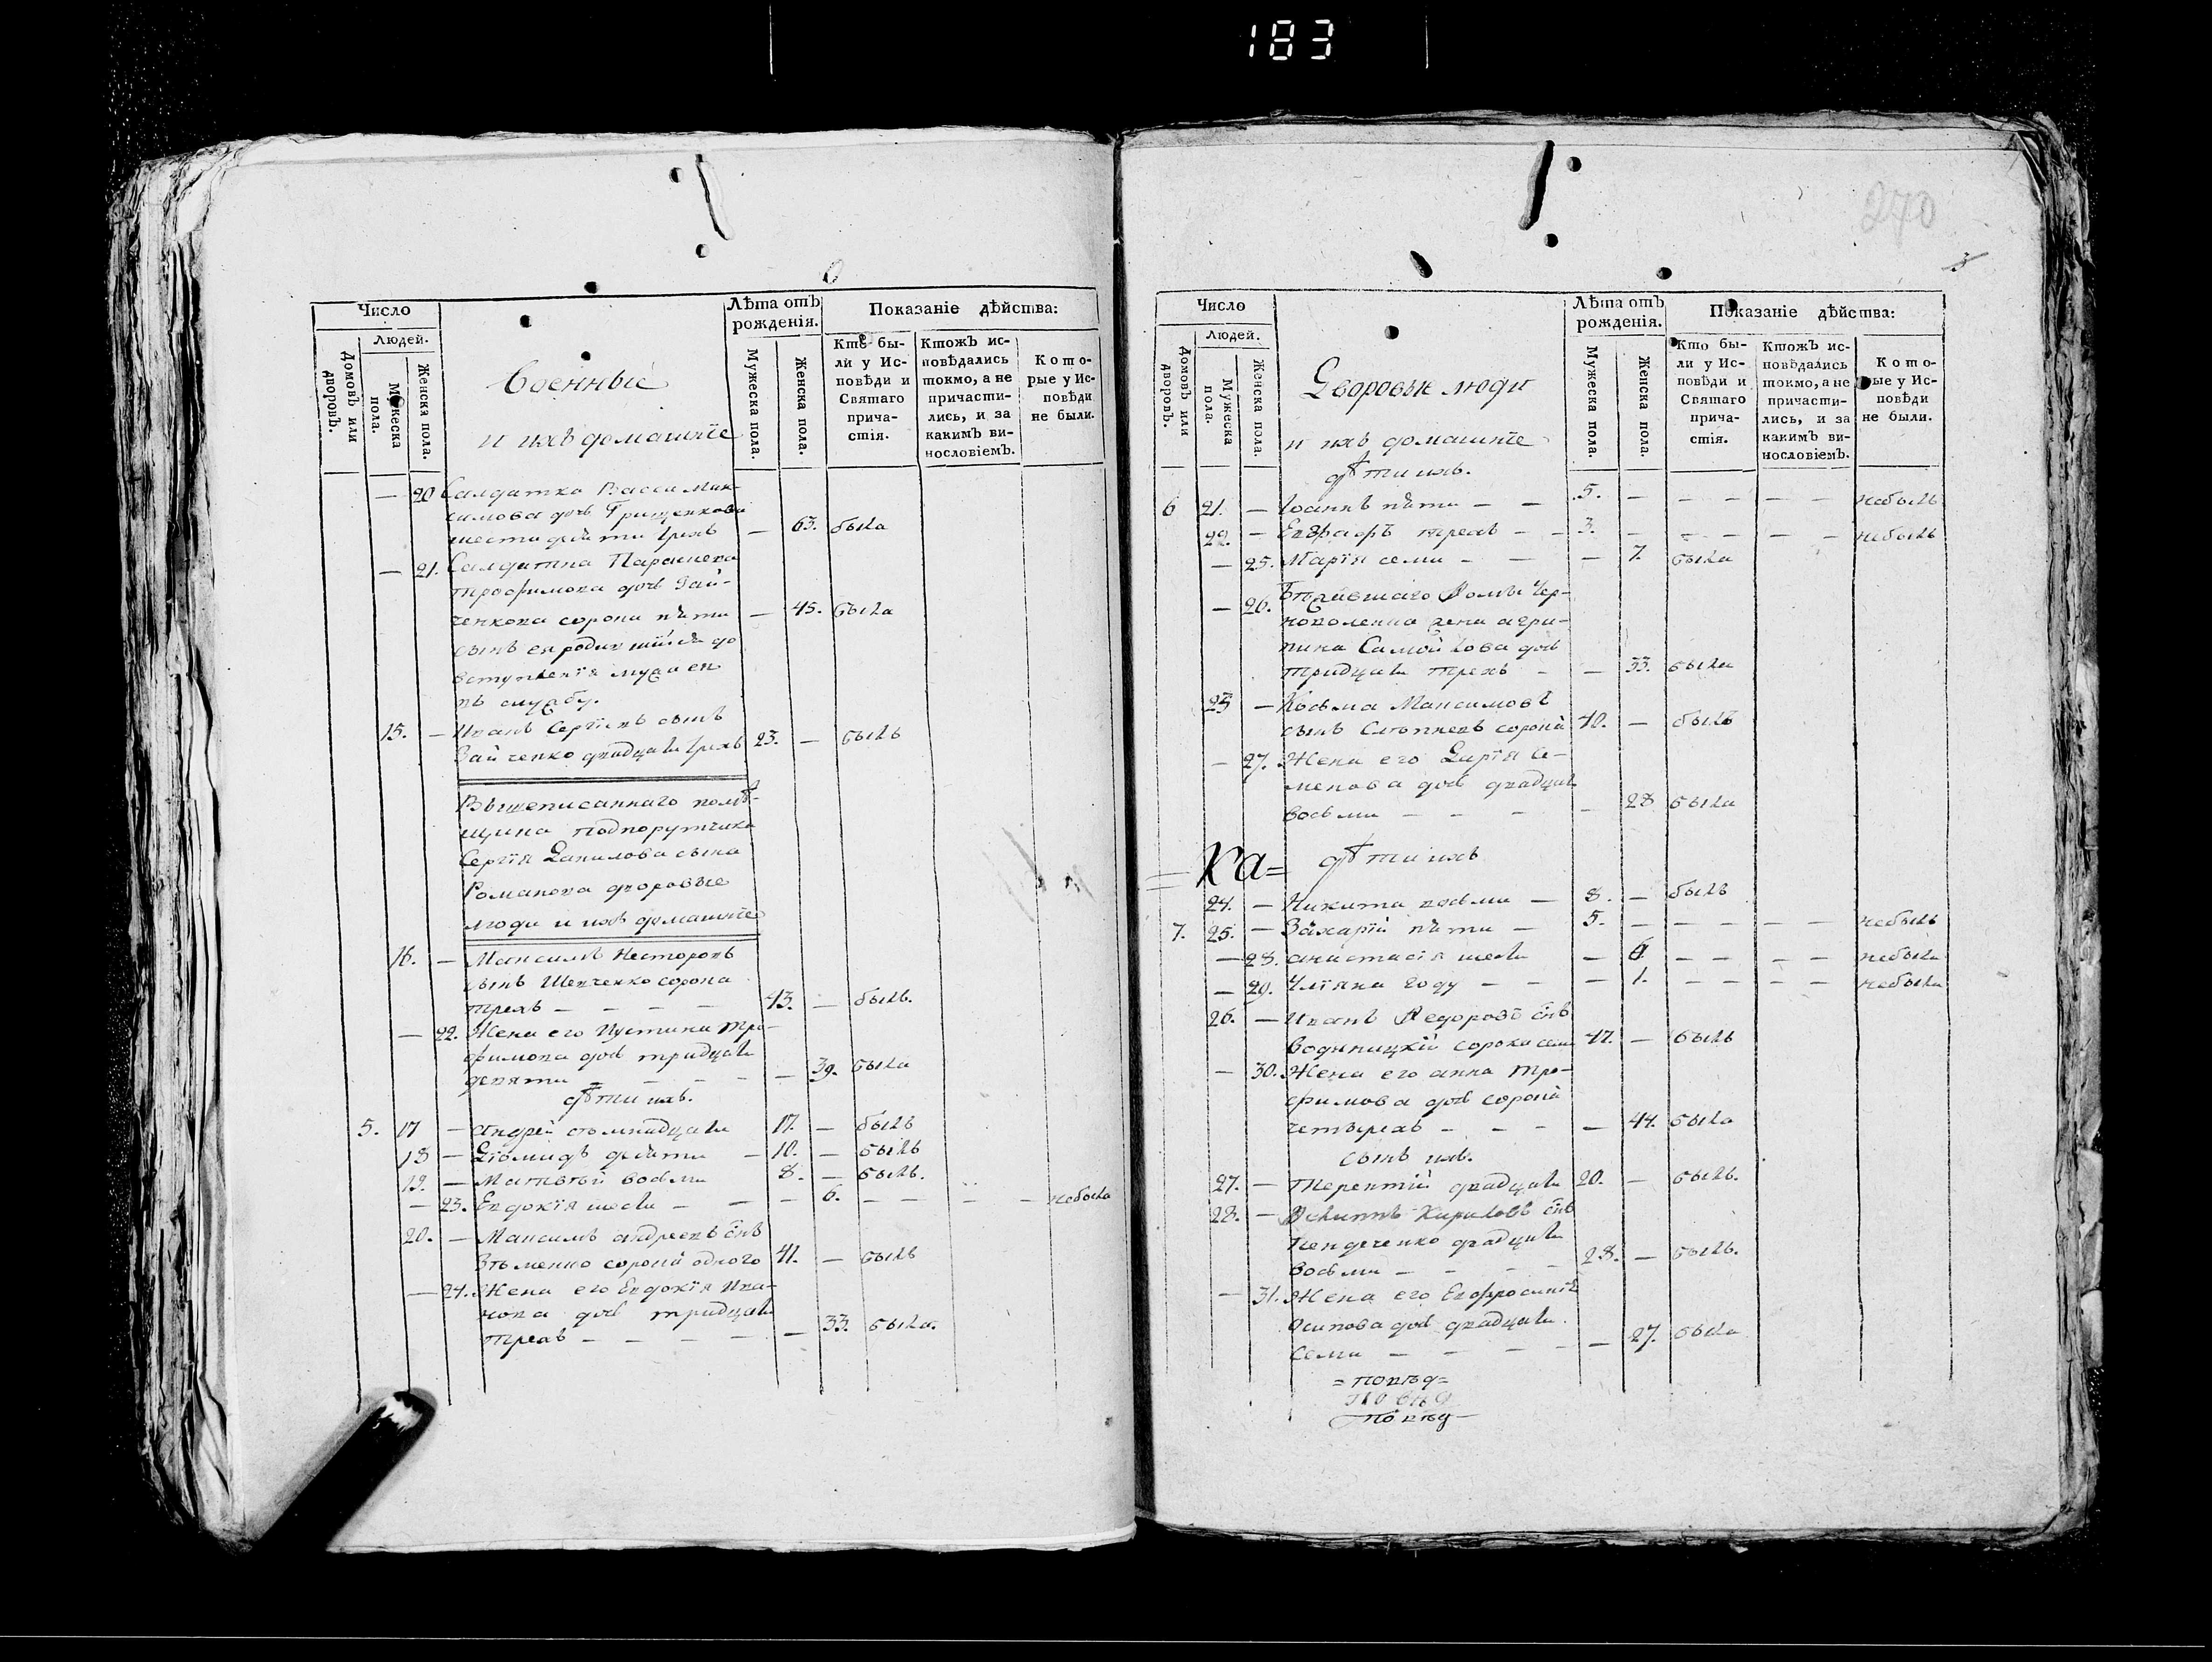 183
Число
Лѣта отъ рожденія.
Показаніе дѣйства:
Людей.
Домовъ или дворовъ.
Мужеска пола.
Женска пола.
Военные
и ихъ домашніе
Мужеска пола.
Женска пола.
Кто бы-
ли у Ис-
повѣди и
Святаго
прича-
стія.
Ктожъ ис-
повѣдались
токмо, а не
причасти-
лись, и за
какимъ ви-
нословіемъ.
Кото-
рые у Ис-
повѣди
не были.
— 20 Салдатка Васса Мак-
симова дочь Грищенкова
шестидесяти трехъ — 63. была
— 21. Салдатка Параскева
Трофимова дочь Зай-
ченкова сорока пяти — 45. была
сынъ ея родившійся до
вступленія мужа ея
въ службу.
15. — Иванъ Сергіевъ сынъ
Зайченко двадцати трехъ 23. — былъ
Вышеписаннаго помѣ-
щика подпорутчика
Сергія Данилова сына
Романова дворовые
люди и ихъ домашніе
16. — Максимъ Несторовъ
сынъ Шевченко сорока
трехъ — — — 43. — былъ.
— 22. Жена его Иустина Тро-
фимова дочь тридцати
девяти — — — — 39. была
дѣти ихъ.
5. 17 — Андрей семнадцати 17. — былъ
18 — Діомидъ десяти — 10. — былъ
19. — Матвѣй восьми 8. — былъ.
— 23. Евдокія шести — — — 6. — — — — небыла
20. — Максимъ Андреевъ снъ
сорока одного 41. — былъ
— 24. Жена его Евдокія Ива-
нова дочь тридцати
трехъ — — — — — 33. была.
270
Число
Лѣта отъ рожденія.
Показаніе дѣйства:
Людей.
Домовъ или дворовъ.
Мужеска пола.
Женска пола.
Дворовые люди
и ихъ домашніе
дѣти ихъ.
Мужеска пола.
Женска пола.
Кто бы-
ли у Ис-
повѣди и
Святаго
прича-
стія.
Ктожъ ис-
повѣдались
токмо, а не
причасти-
лись, и за
какимъ ви-
нословіемъ.
Кото-
рые у Ис-
повѣди
не были.
6 21. — Іоаннъ пяти — — 5. — — — — — небылъ
22. — Евграфъ трехъ — — 3. — — — — — небылъ
— 25. Марія семи — — — 7. была
— 26. Ѳомы Чер-
жена Агри-
пина Самойлова дочь
тридцати трехъ — — 33. была
23 — Козьма Максимовъ
сынъ сорока 40. — былъ
— 27. Жена его Дарія Се-
менова дочь двадцати
восьми — — — — 28 была
= Ка = дѣти ихъ
24. — Никита восьми — 8. — былъ
7. 25. — Захарій пяти — 5. — — — — — небылъ
— 28. Анастасія шести — 6 — — — — небыла
— 29. Уліяна году — — — 1. — — — — небыла
26. — Иванъ Ѳедоровъ снъ
Водяницкій сорока семи 47. — былъ
— 30. Жена его Анна Тро-
фимова дочь сорока
четырехъ — — — — 44. была
сынъ ихъ.
27. — Терентій двадцати 20. — былъ.
28. — Филиппъ Кириловъ снъ
двадцати
восьми — — — — 28. — былъ.
— 31. Жена его Евфросинія
Осипова дочь двадцати
семи — — — — — 27. была